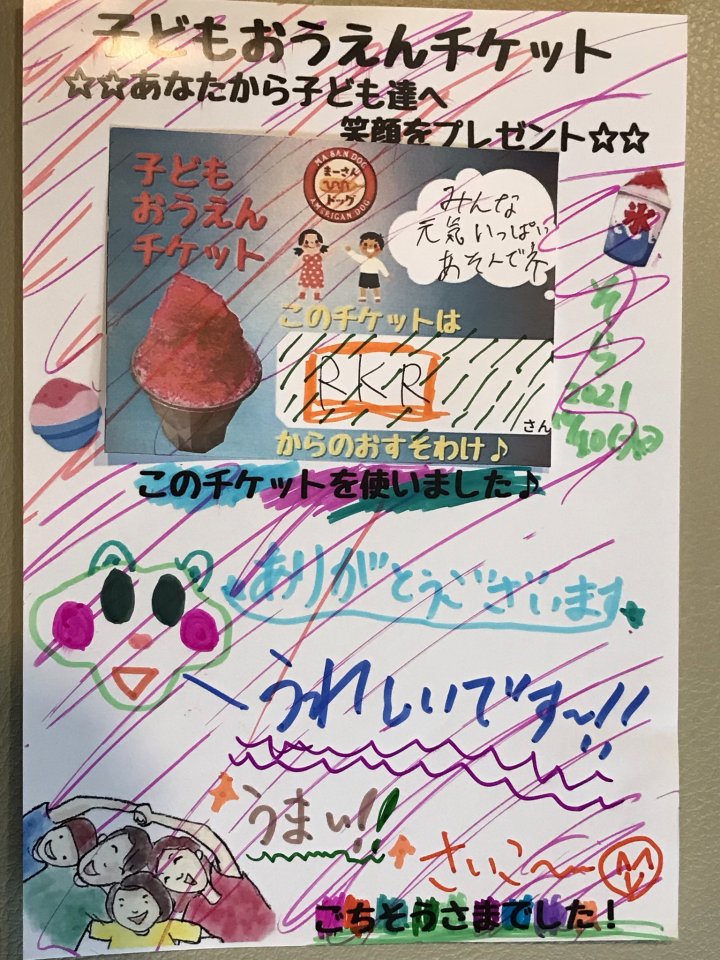 子どもおうえんチケット
☆☆あなたから子ども達へ
笑顔をプレゼント☆☆
子ども
おうえん
チケット
MA SAN DOG
まーさん
ドッグ
AMERICAN DOG
みんな
元気いっぱい
あそんでネ
氷
このチケットは
RKR
さん
からのおすそわけ♪
そら
2021
このチケットを使いました♪
ありがとうございます
うれしいです〜!!
うまい!!
さいこ〜
ごちそうさまでした！